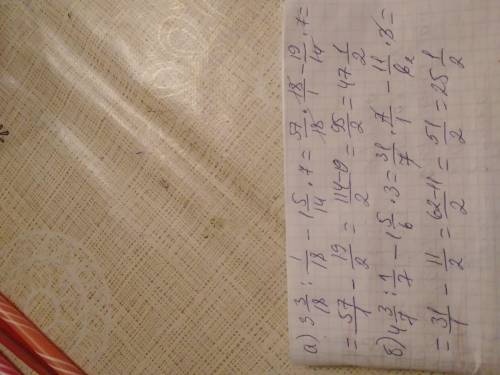 а) 3 3/18 : 1/18 - 1 5/14 · 7 = 57/18 · 18/1 - 19/14 · 7 =
= 57/1 - 19/2 = 114-19/2 = 95/2 = 47 1/2
в) 4 3/7 : 1/7 - 1 5/6 · 3 = 31/7 · 7/1 - 11/6 2 · 3 =
= 31/1 - 11/2 = 62-11/2 = 51/2 = 25 1/2